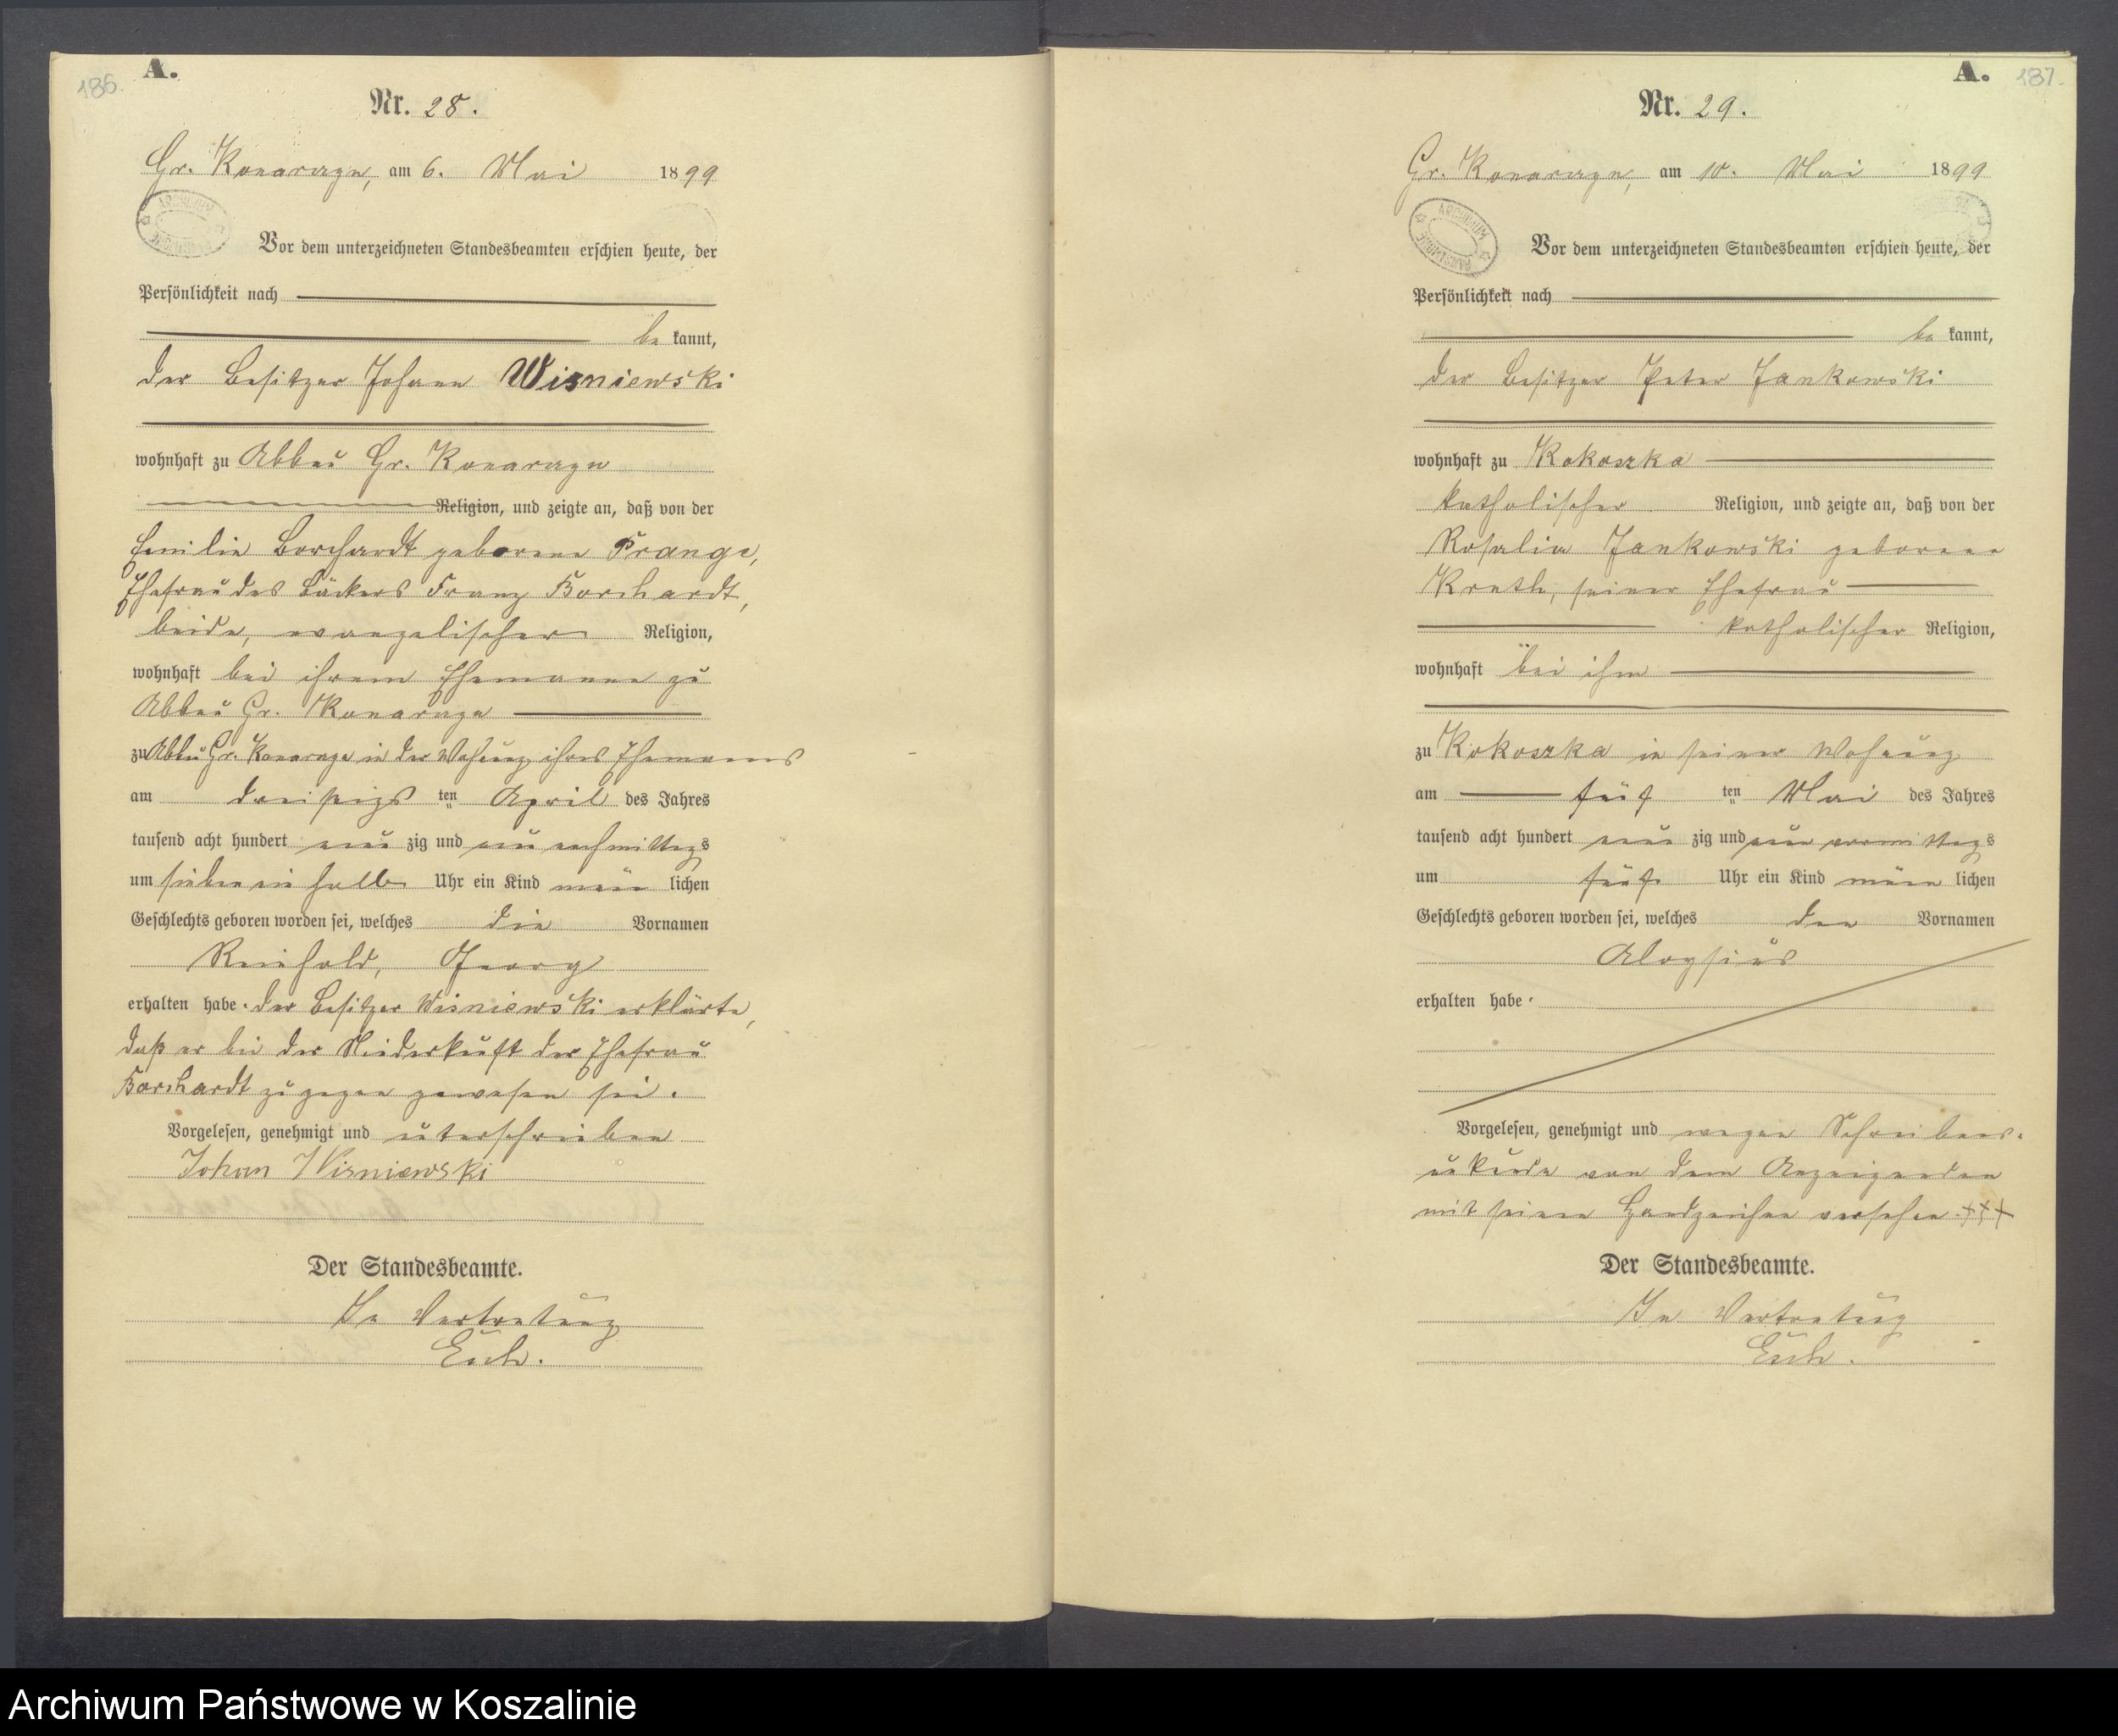 186.
A.
Nr. 28.
Gr. Konarczyn, am 6. Mai 1899
Vor dem unterzeichneten Standesbeamten erschien heute, der
Persönlichkeit nach
be kannt,
der Besitzer Johann Wisniewski
wohnhaft zu Abbau Gr. Konarczyn
Religion, und zeigte an, daß von der
Emilie Borchardt geborene Prange,
Ehefrau des Bäckers Franz Borchardt,
beide, evangelischer Religion,
wohnhaft bei ihrem Ehemanne zu
Abbau Gr. Konarczyn
zu Abbau Gr. Konarczyn in der Wohnung ihres Ehemannes
am dreißigs ten April des Jahres
tausend acht hundert neun zig und neun nachmittags
um sieben ein halb Uhr ein Kind männ lichen
Geschlechts geboren worden sei, welches die Vornamen
Reinhold, Georg
erhalten habe. Der Besitzer Wisniewski erklärte,
daß er bei der Niederkunft der Ehefrau
Borchardt zugegen gewesen sei.
Vorgelesen, genehmigt und unterschrieben
Johan Wisniewski
Der Standesbeamte.
In Vertretung
Esch.
A.
187.
Nr. 29.
Gr. Konarczyn, am 10. Mai 1899
ARCHIWUM PAŃSTWOWE
Vor dem unterzeichneten Standesbeamten erschien heute, der
Persönlichkeit nach
be kannt,
der Besitzer Peter Jankowski
wohnhaft zu Kokoszka
katholischer Religion, und zeigte an, daß von der
Rosalia Jankowski geborene
Kreth, seiner Ehefrau
katholischer Religion,
wohnhaft bei ihm
zu Kokoszka in seiner Wohnung
am fünf ten Mai des Jahres
tausend acht hundert neun zig und neun vormittags
um fünf Uhr ein Kind männ lichen
Geschlechts geboren worden sei, welches den Vornamen
Aloysius
erhalten habe.
Vorgelesen, genehmigt und wegen Schreibens-
unkunde von dem Anzeigenden
mit seinem Handzeichen versehen. +++
Der Standesbeamte.
In Vertretung
Esch.
Archiwum Państwowe w Koszalinie